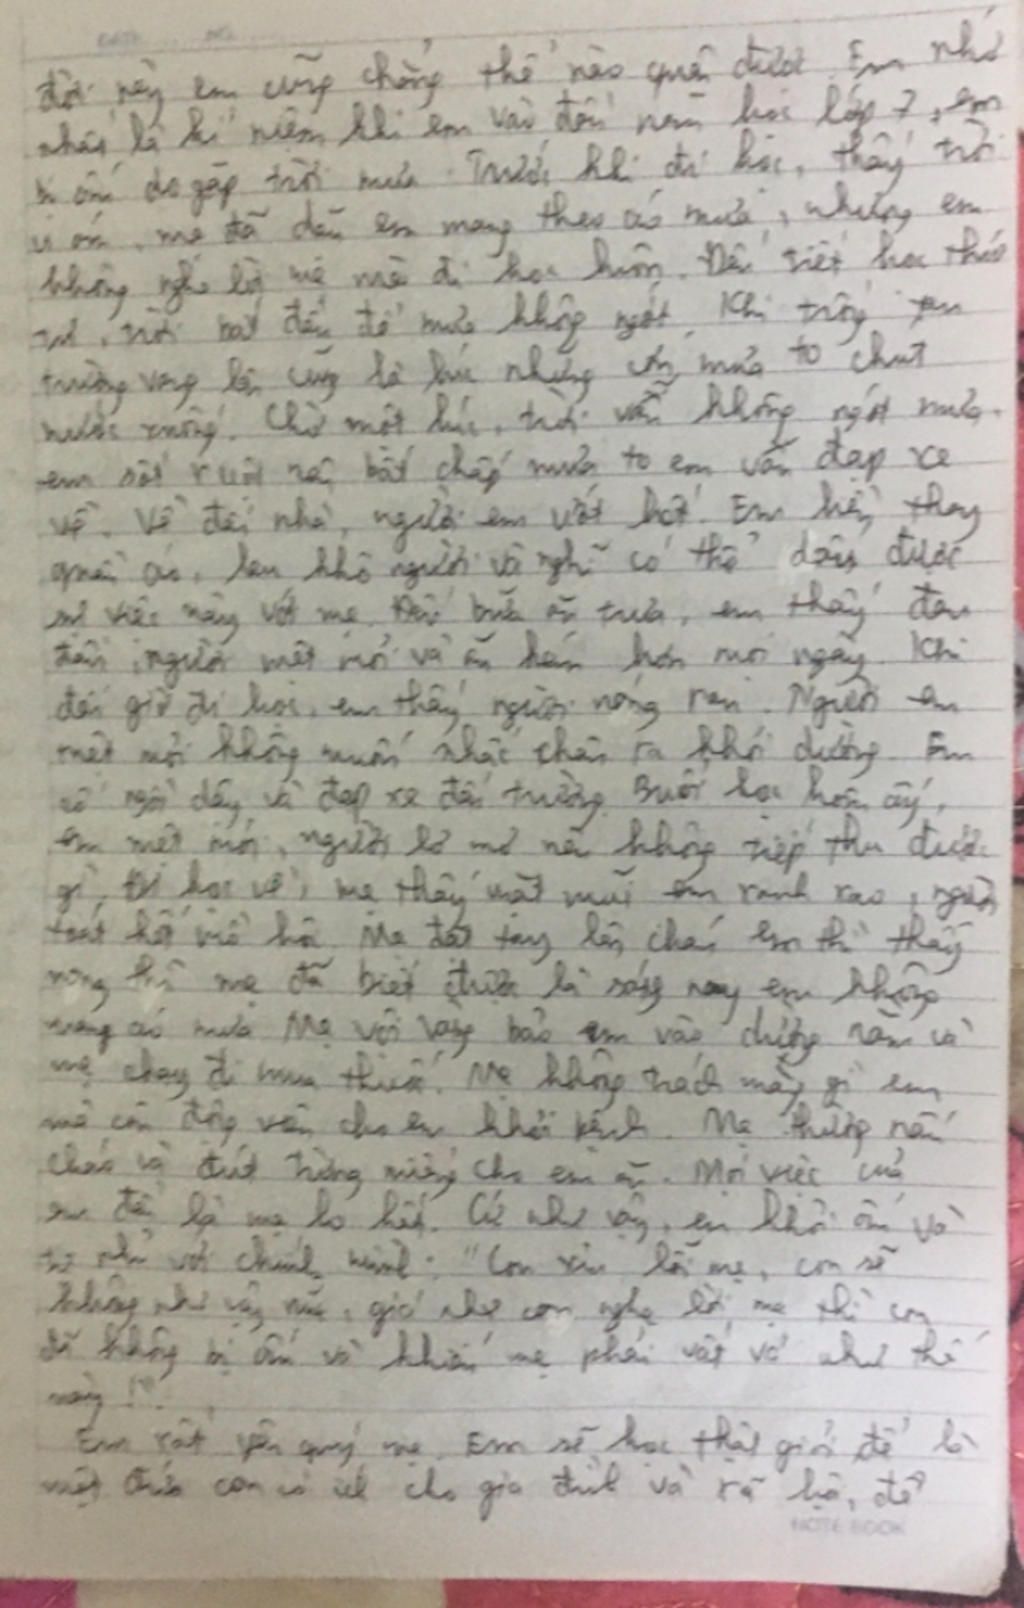 DATE NO.
đời này em cũng chẳng thể nào quên được. Em nhớ
nhất là kỉ niệm khi em vào đầu năm học lớp 7, em
bị ốm do gặp trời mưa. Trước khi đi học, thấy trời
u ám, mẹ đã dặn em mang theo áo mưa, nhưng em
không nghe lời mẹ mà đi học luôn. Đến tiết học thứ
tư, trời bắt đầu đổ mưa không ngớt. Khi trống
trường vang lên cũng là lúc những cơn mưa to chút
nước xuống. Chờ một lúc, trời vẫn không ngớt mưa,
em sốt ruột nên bất chấp mưa to em vẫn đạp xe
về. Về đến nhà, người em ướt hết. Em liền thay
quần áo, lau khô người và nghĩ có thể dấu được
sự việc này với mẹ. Đến bữa ăn trưa, em thấy đau
đầu, người mệt mỏi và ăn kém hơn mọi ngày. Khi
đến giờ đi học, em thấy người nóng ran. Người em
mệt mỏi không muốn nhấc chân ra khỏi giường. Em
cố ngồi dậy và đạp xe đến trường. Buổi học hôm ấy,
em mệt mỏi, người lơ mơ nên không tiếp thu được
gì. Đi học về, mẹ thấy mặt mũi em xanh xao, người
toát hết mồ hôi. Mẹ đặt tay lên chán em thì thấy
nóng thì mẹ đã biết được là sáng nay em không
mang áo mưa. Mẹ vội vàng bảo em vào giường nằm và
mẹ chạy đi mua thuốc. Mẹ không trách mắng gì em
mà còn động viên cho em khỏi bệnh. Mẹ thường nấu
cháo và đút từng miếng cho em ăn. Mọi việc của
em đều là mẹ lo hết. Cứ như vậy, em khỏi ốm và
tự nhủ với chính mình: "Con xin lỗi mẹ, con sẽ
không như vậy nữa, giá như con nghe lời mẹ thì con
đã không bị ốm và khiến mẹ phải vất vả như thế
này!".
Em rất yêu quý mẹ. Em sẽ học thật giỏi để là
một đứa con có ích cho gia đình và xã hội, để
NOTE BOOK